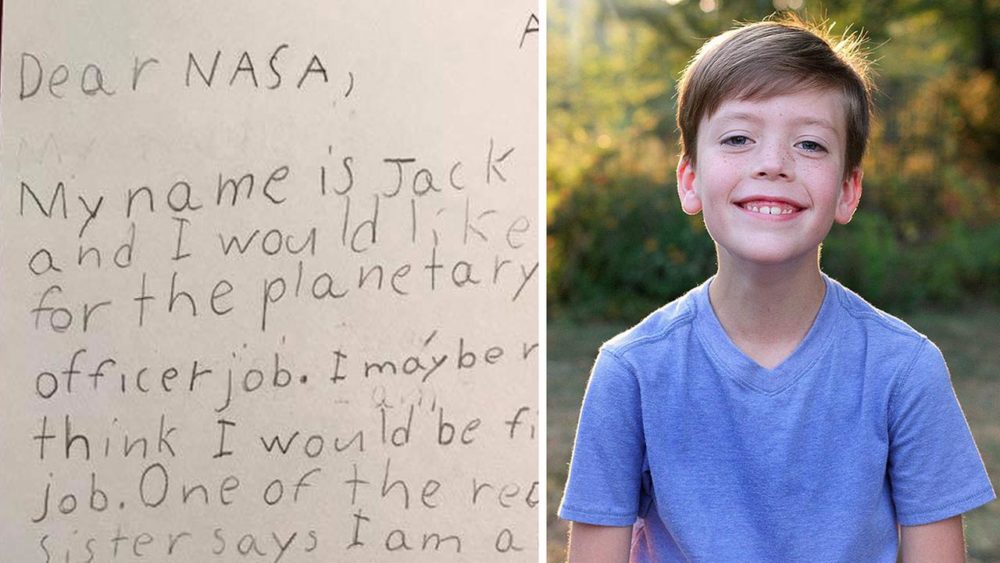 A
Dear NASA,
My name is Jack
and I would like
for the planetary
officer job. I may be
think I would be fi
job. One of the rea
sister says I am a